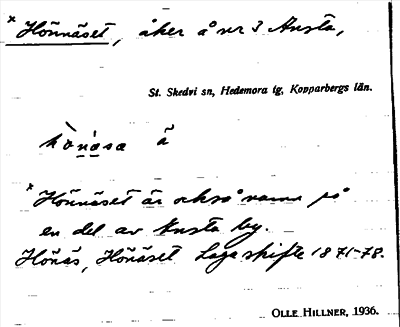 *Hönnäset, åker å nr 3 Knsta,
St. Skedvi sn, Hedemora tg, Kopparbergs län.
hö̀näsa ä
*Hönnäset är också namn på
en del av Knsta by.
Hönäs, Hönäset Laga skifte 1871-78.
OLLE HILLNER, 1936.